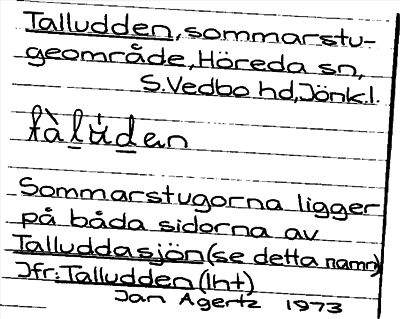 Talludden, sommarstu-
geområde, Höreda sn,
S.Vedbo hd, Jönk.l.
tàlúdən
Sommarstugorna ligger
på båda sidorna av
Talluddasjön (se detta namn)
Jfr: Talludden (lht)
Jan Agertz 1973